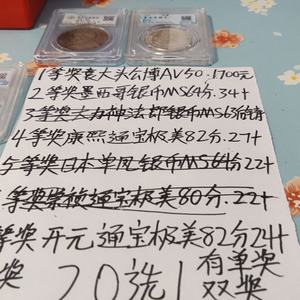 1等奖袁大头公博AV50.1700元
2等奖墨西哥银币MS64分.34+
3等奖大力神法郎银币MS63
4等奖康熙通宝极美82分.27+
5等奖日本单凤银币MS64分22+
等奖崇祯通宝极美80分.22+
等奖开元通宝极美82分22+
奖 20选1 有单奖
双奖